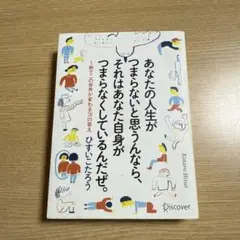 あなたの人生が
つまらないと思うんなら、
それはあなた自身が
つまらなくしているんだぜ。
ひすいこたろう
Kotaro Hisui
Discover